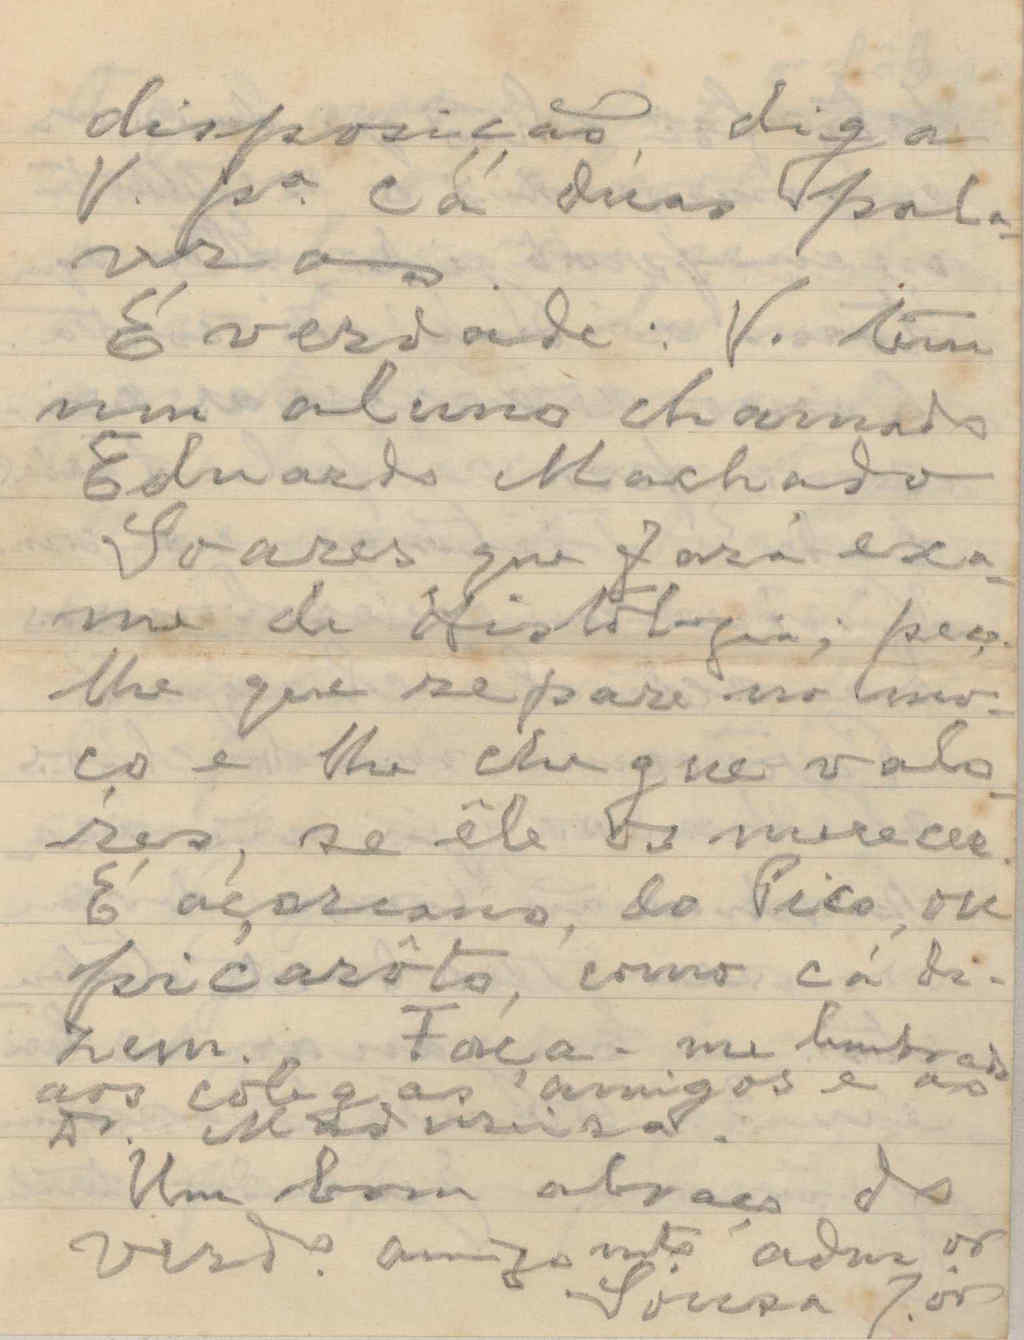 disposição, diga
V. pª. cá duas pala-
vras
É verdade: V. tem
um aluno chamado
Eduardo Machado
Soares que fará exa-
me de Histologia; peço-
lhe que repare no mo-
ço e lhe chegue valo-
res, se êle os merecer.
É açoreano, do Pico, ou
picarôto, como cá di-
zem. Faça-me lembrado
aos colegas amigos e ao
Dr. Madureira.
Um bom abraço do
verdº. amigo mtº admor
Sousa Jor